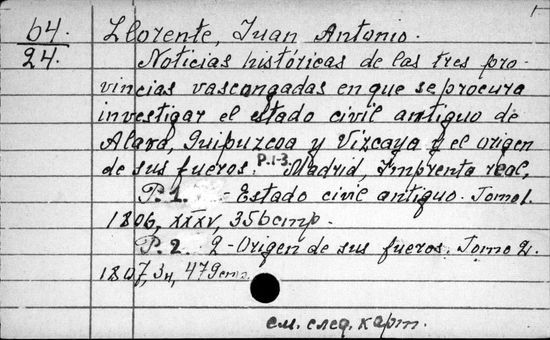 64.
24.
Llorente, Juan Antonio.
Noticias históricas de las tres pro-
vincias vascongadas en que se procura
investigar el estado civil antiguo de
Alava, Guipuzcoa y Vizcaya y el origen
de sus fueros. P.1-3. Madrid, Imprenta real,
P. 1. - Estado civil antiguo. Tomo 1.
1806, XXXV, 356 стр.
P. 2. 2 - Origen de sus fueros. Tomo 2.
1807, 3 н, 479 стр.
см. след. карт.